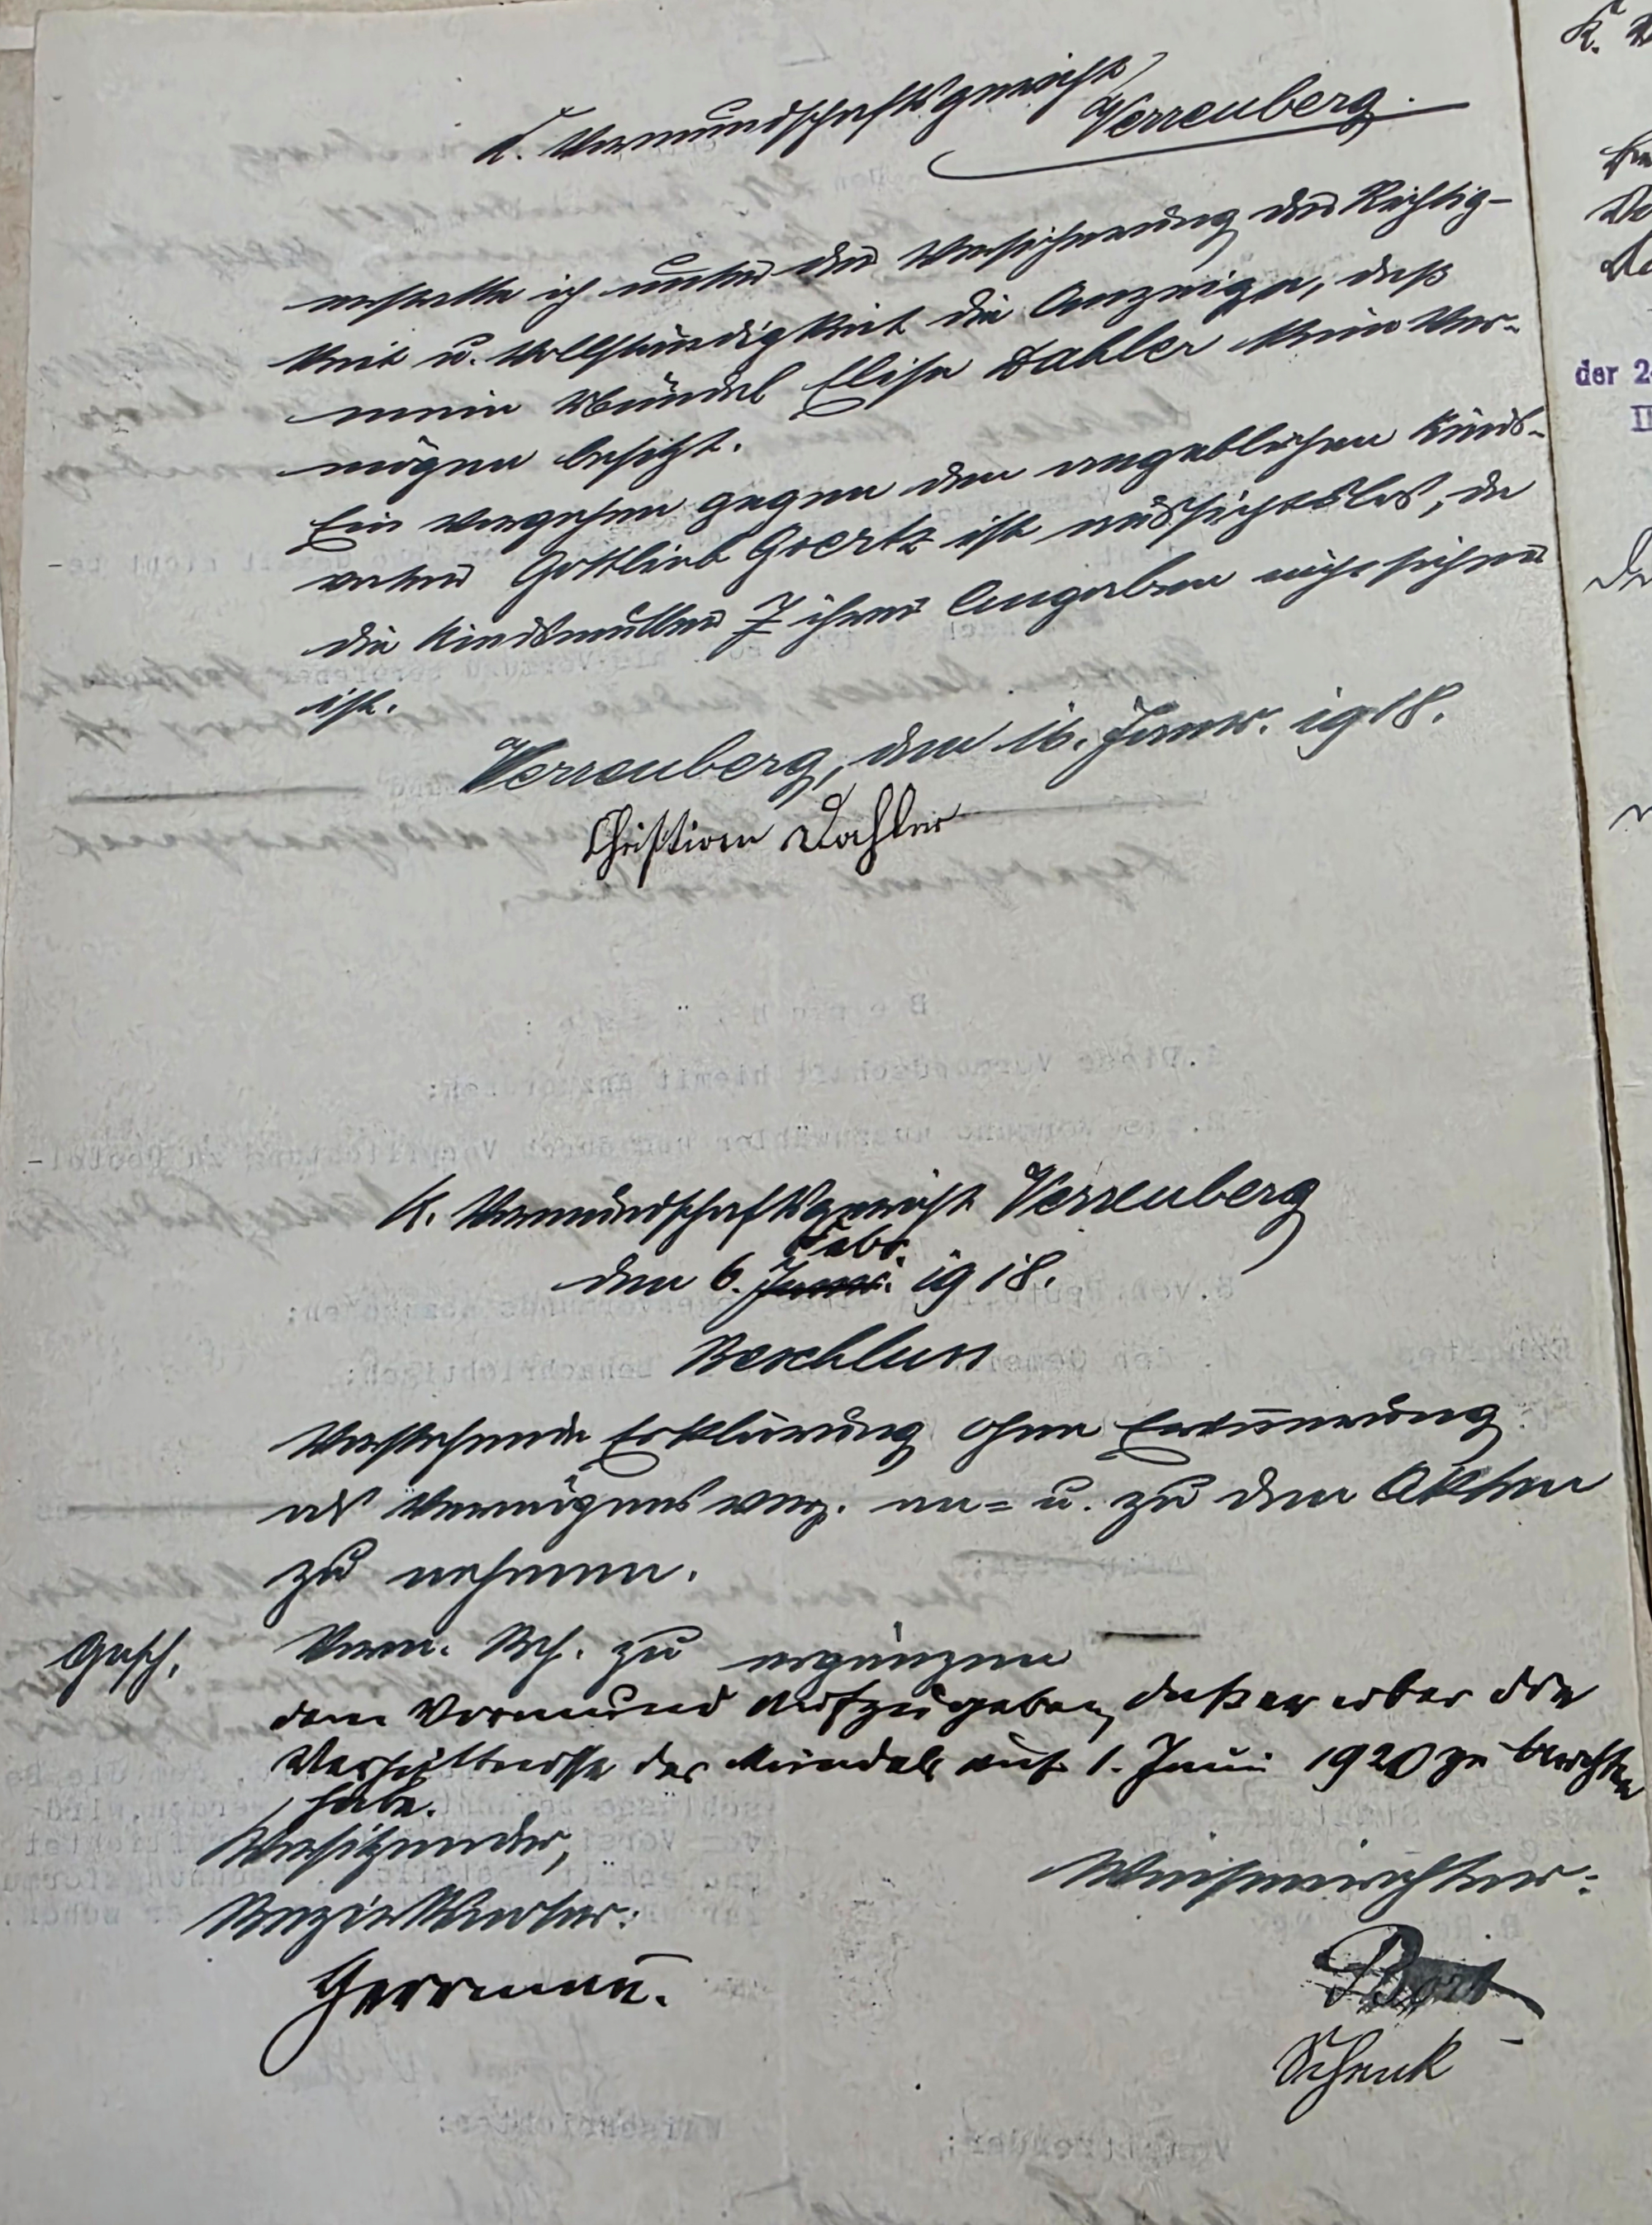 K. Vormundschaftsgericht
Verrenberg.
erstatte ich unter der Versicherung der Richtig-
keit u. Vollständigkeit die Anzeige, daß
mein Mündel Elise Dahler kein Ver-
mögen besitzt.
Ein Vorgehen gegen den angeblichen Kinds-
vater Gottlieb Goertz ist aussichtslos, da
die Kindsmutter ihrer Angaben nicht sicher
ist.
Verrenberg, den 16. Janr. 1918.
Christian Dahler
K. Vormundschaftsgericht Verrenberg
Febr.
den 6. Janr. 1918.
Beschluss
Vorstehende Erklärung ohne Erinnerung
als Vermögensverz. an- u. zu den Akten
zu nehmen.
Gesch. Vorm. zu ergänzen
dem Vormund aufzugeben, daß er über die
Verhältnisse des Mündels auf 1. Juni 1920 zu berichten
habe.
Vorsitzender,
Bezirksnotar: Waisenrichter:
Herrmann. Bort
Schenk
der 2